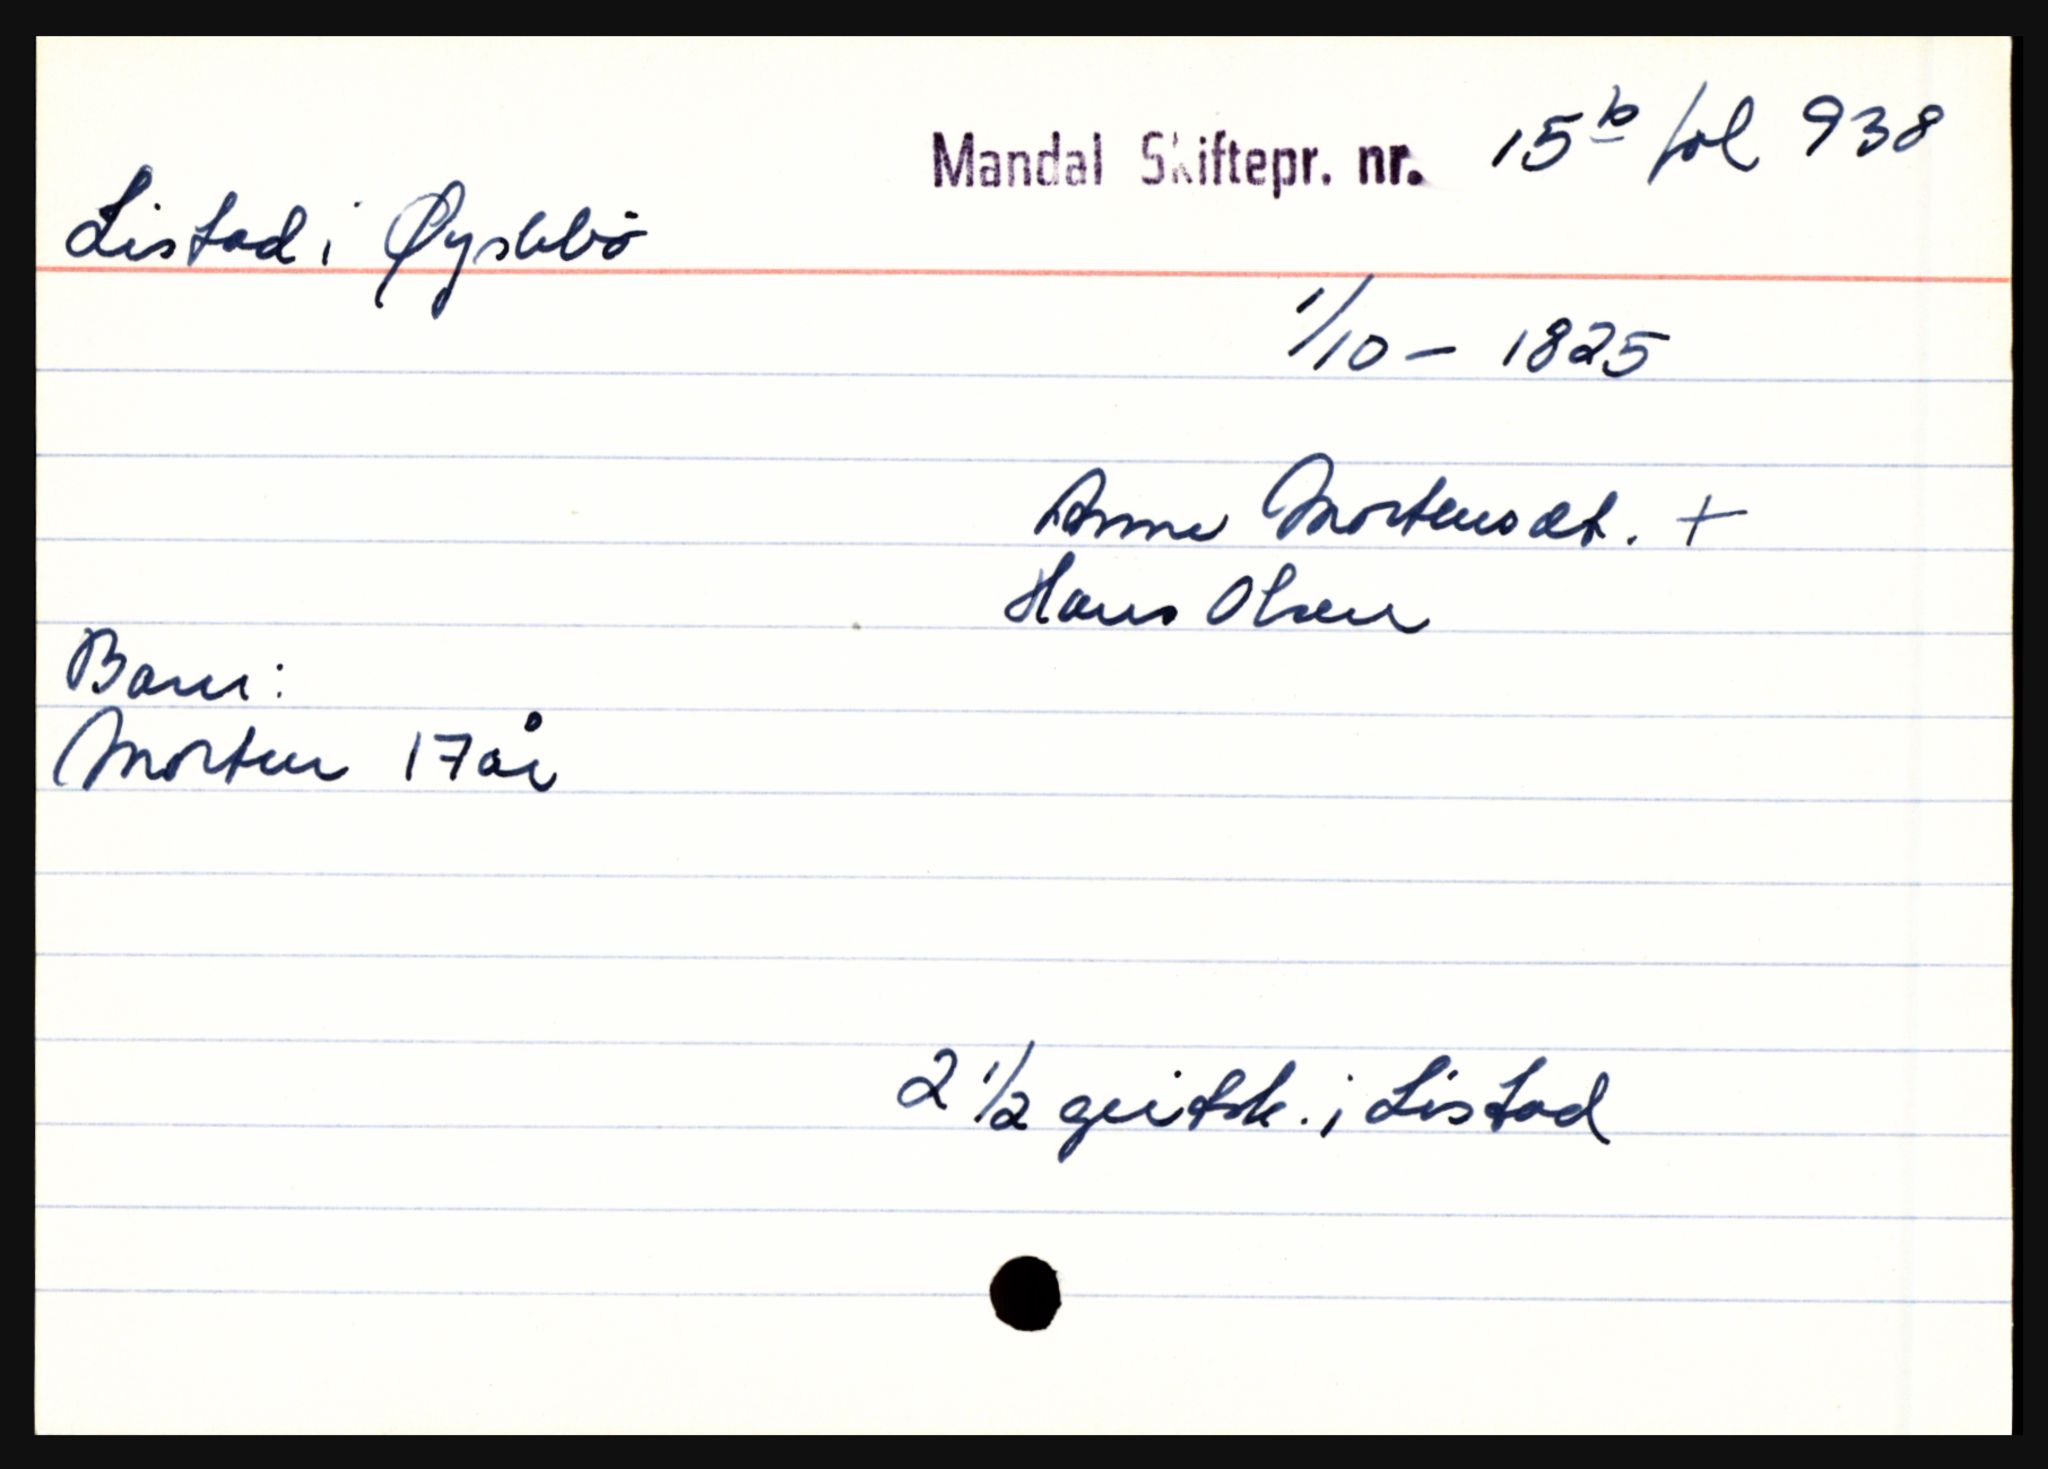 Mandal Skiftepr. nr. 15b fol 938
Listad i Øyslebø
1/10 - 1825
Anne Mortensdt. +
Hans Olsen
Barn:
Morten 17 år
2 1/2 geitsk. i Listad